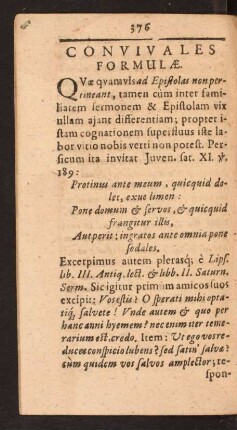 376
CONVIVALES
FORMULÆ.
QVæ qvamvis ad Epistolas non per-
tineant, tamen cùm inter fami-
liatem sermonem & Epistolam vix
ullam ajant differentiam; propter i-
stam cognationem supersluus iste la-
bor vitio nobis verti non potest. Per-
sicum ita invitat Juven. sat. XI. ỳ.
189:
Protinus ante meum, quicquid do-
let, exue limen:
Pone domum & servos, & quicquid
frangitur illis,
Aut perit; ingratos ante omnia pone
sodales.
Excerpimus autem plerasq; è Lips.
lib. III. Antiq. lect. & libb. II. Saturn.
Serm. Sic igitur primùm amicos suos
excipit: Vosestis? O sperati mihi opta-
tiq́, salvete! Unde autem & quo per
hanc anni hyemem? nec enim iter teme-
rarium est, credo. Item: Ut ego vos re-
duces conspicio lubens? sed satin' salvæ?
cùm quidem vos salvos amplector; te-
spon-